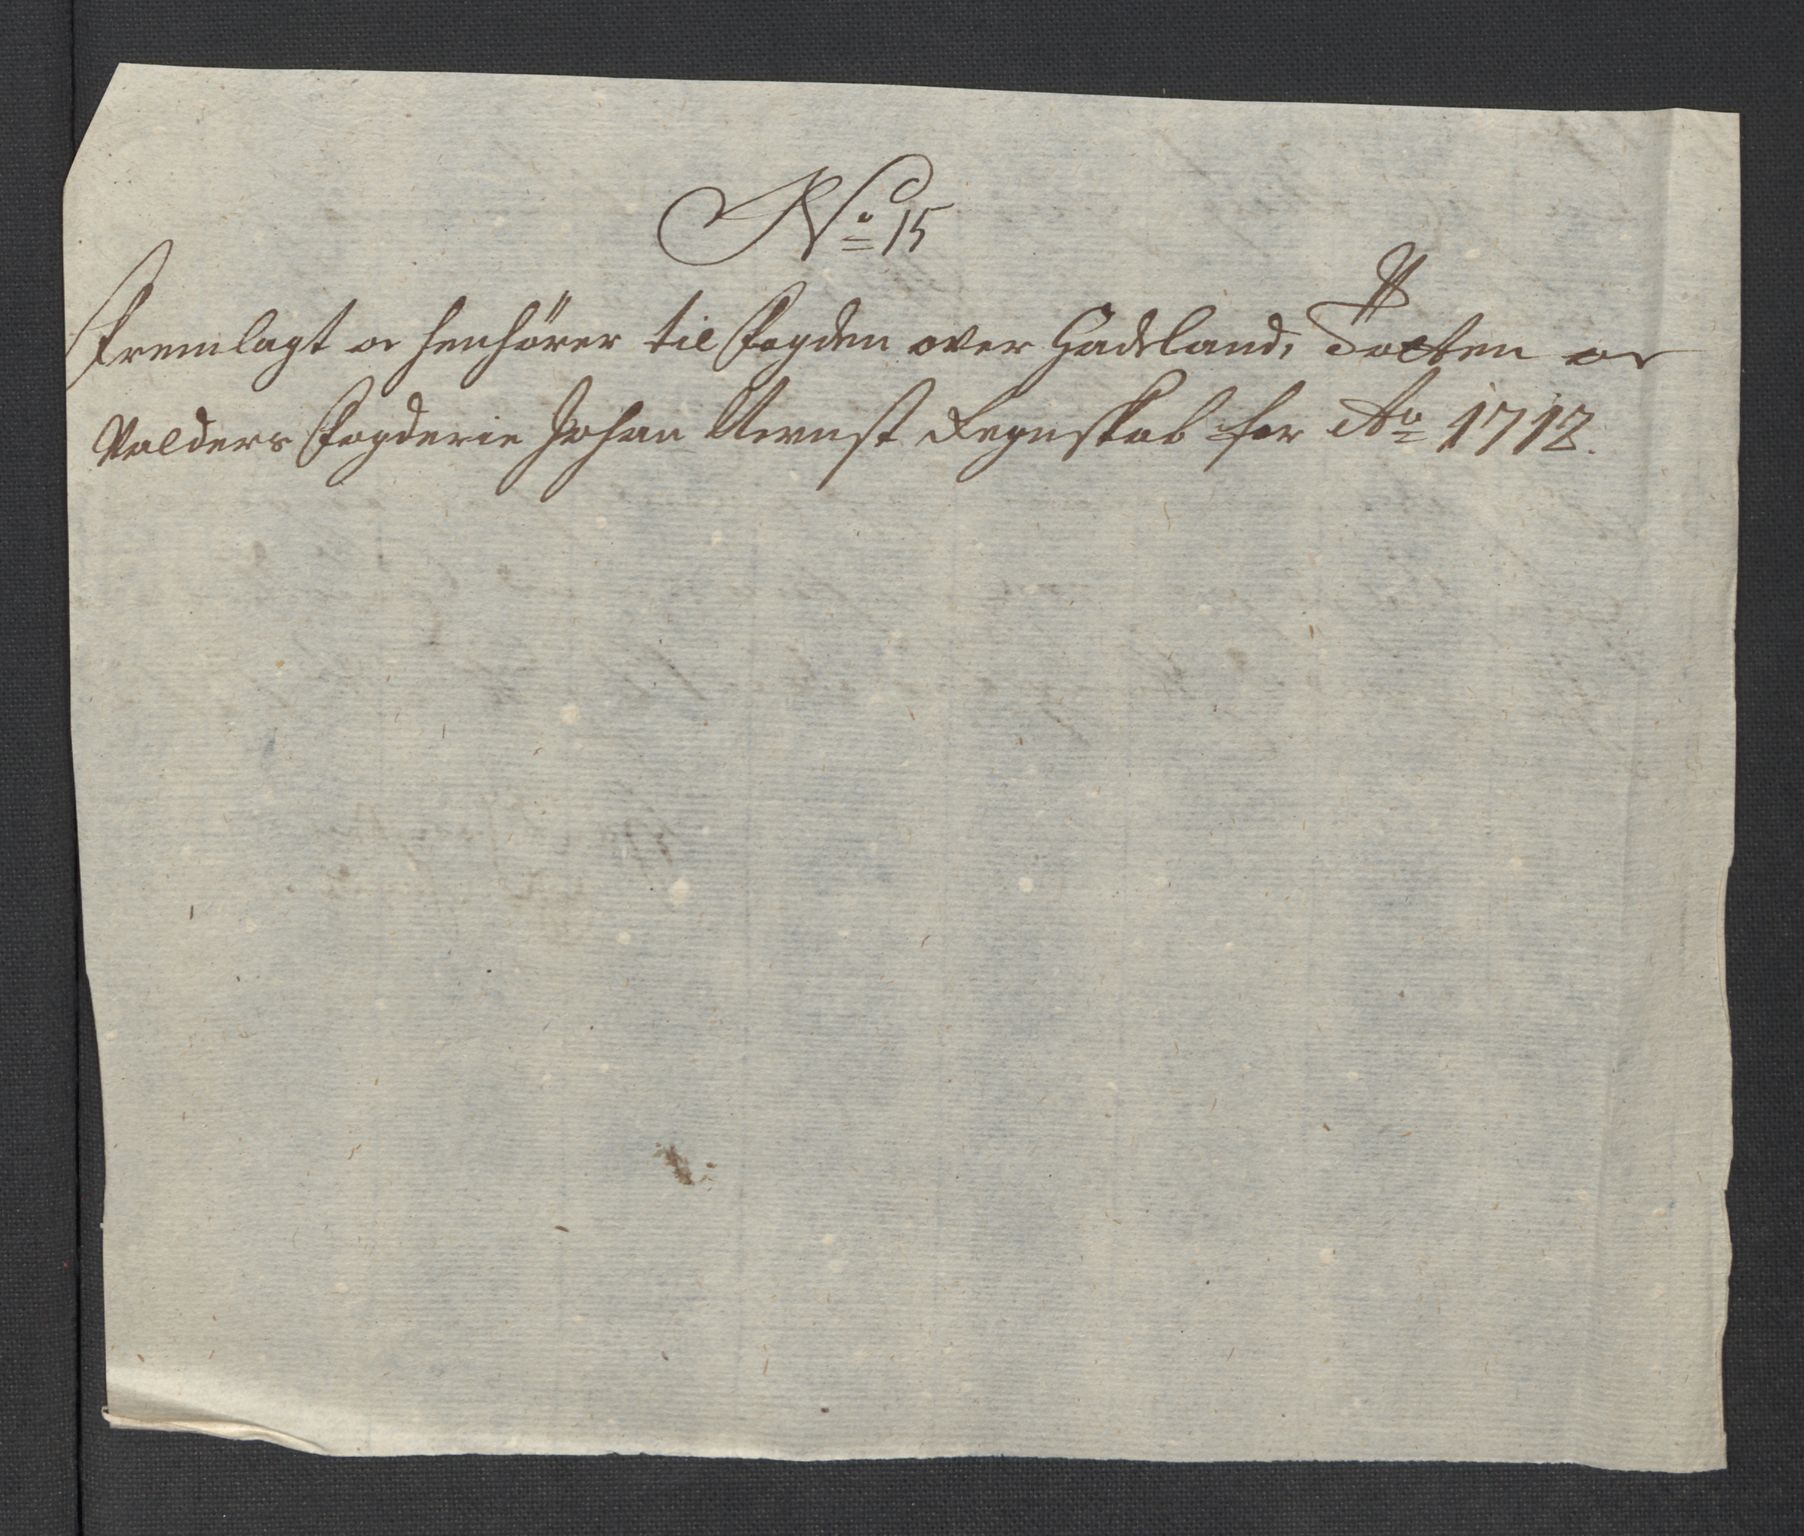 No 15
Fremlagt og henhører til Fogden over Hadeland, Totten og
Valders Fogderie Johan Regnskab for Ao 1712.